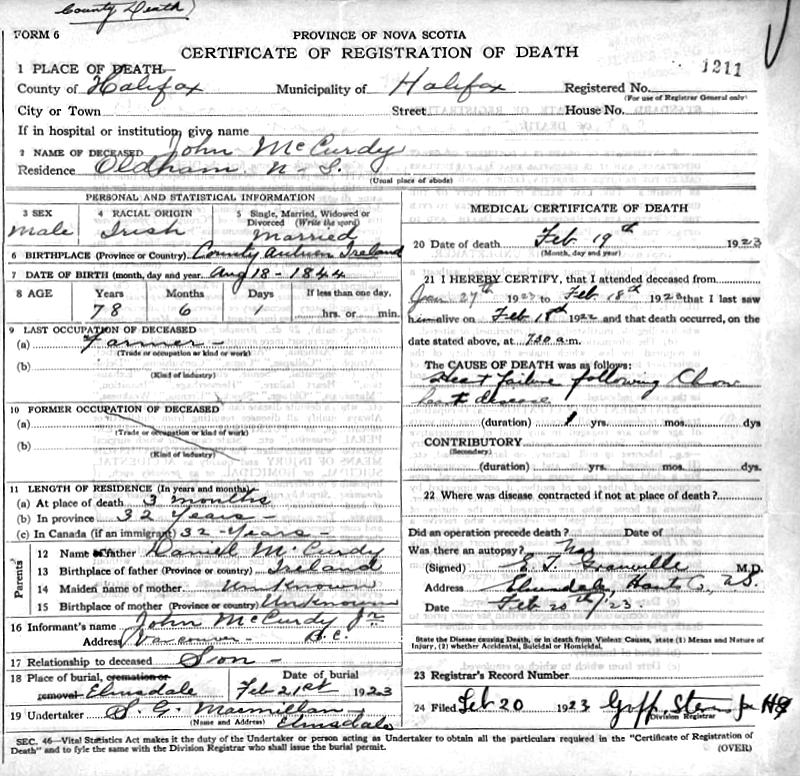 County Death
FORM 6
PROVINCE OF NOVA SCOTIA
CERTIFICATE OF REGISTRATION OF DEATH
1211
1 PLACE OF DEATH—
County of Halifax Municipality of Halifax Registered No.
(For use of Registrar General only)
City or Town Street House No.
If in hospital or institution, give name
2 NAME OF DECEASED John McCurdy
Residence Oldham N-S.
(Usual place of abode)
PERSONAL AND STATISTICAL INFORMATION
3 SEX 4 RACIAL ORIGIN 5 Single, Married, Widowed or Divorced (Write the word)
Male Irish Married
6 BIRTHPLACE (Province or Country) County Antrim Ireland
7 DATE OF BIRTH (month, day and year) Aug 18 - 1844
8 AGE Years Months Days If less than one day,
78 6 1 hrs. or min.
9 LAST OCCUPATION OF DECEASED
(a) Farmer -
(Trade or occupation or kind of work)
(b)
(Kind of industry)
10 FORMER OCCUPATION OF DECEASED
(a)
(Trade or occupation or kind of work)
(b)
(Kind of industry)
11 LENGTH OF RESIDENCE (In years and months)
(a) At place of death 3 months
(b) In province 32 Years -
(c) In Canada (if an immigrant) 32 Years -
Parents
12 Name of father Daniel McCurdy
13 Birthplace of father (Province or country) Ireland
14 Maiden name of mother Unknown
15 Birthplace of mother (Province or Country) Unknown
16 Informant's name John McCurdy Jr
Address Vancouver - B.C.
17 Relationship to deceased Son -
18 Place of burial, cremation or removal Elmsdale Date of burial Feb 21st 1923
19 Undertaker S. G. Macmillan -
(Name and Address) Elmsdale
MEDICAL CERTIFICATE OF DEATH
20 Date of death Feb 19th 1923
(Month, day and year)
21 I HEREBY CERTIFY, that I attended deceased from
Jan 27th 1923 to Feb 18th 1923 that I last saw
him alive on Feb 18th 1922 and that death occurred, on the
date stated above, at 7.30 a.m.
The CAUSE OF DEATH was as follows:
Heart failure following Chron
heart disease
(duration) 1 yrs. mos. dys
CONTRIBUTORY
(Secondary)
(duration) yrs. mos. dys.
22 Where was disease contracted if not at place of death?
Did an operation precede death? Date of
Was there an autopsy? No
(Signed) E. T. Granville M.D.
Address Elmsdale, Hants Co., N.S.
Date Feb 20th/23.
State the Disease causing Death, or in death from Violent Causes, state (1) Means and Nature of
Injury, (2) whether Accidental, Suicidal or Homicidal.
23 Registrar's Record Number
24 Filed Feb 20 1923
Division Registrar
SEC. 46—Vital Statistics Act makes it the duty of the Undertaker or person acting as Undertaker to obtain all the particulars required in the "Certificate of Registration of
Death" and to fyle the same with the Division Registrar who shall issue the burial permit. (OVER)